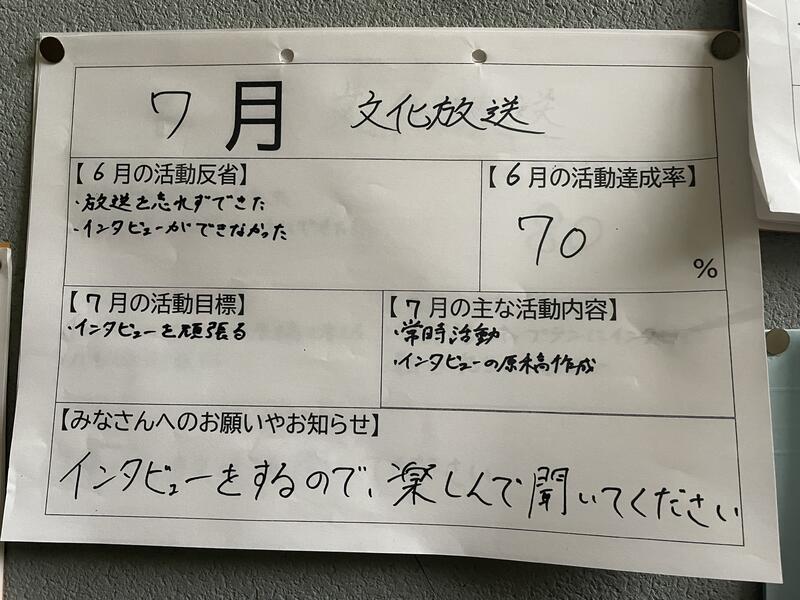 7月 文化放送
【6月の活動反省】
・放送を忘れずできた
・インタビューができなかった
【6月の活動達成率】
70
%
【7月の活動目標】
・インタビューを頑張る
【7月の主な活動内容】
・常時活動
・インタビューの原稿作成
【みなさんへのお願いやお知らせ】
インタビューをするので、楽しんで聞いてください